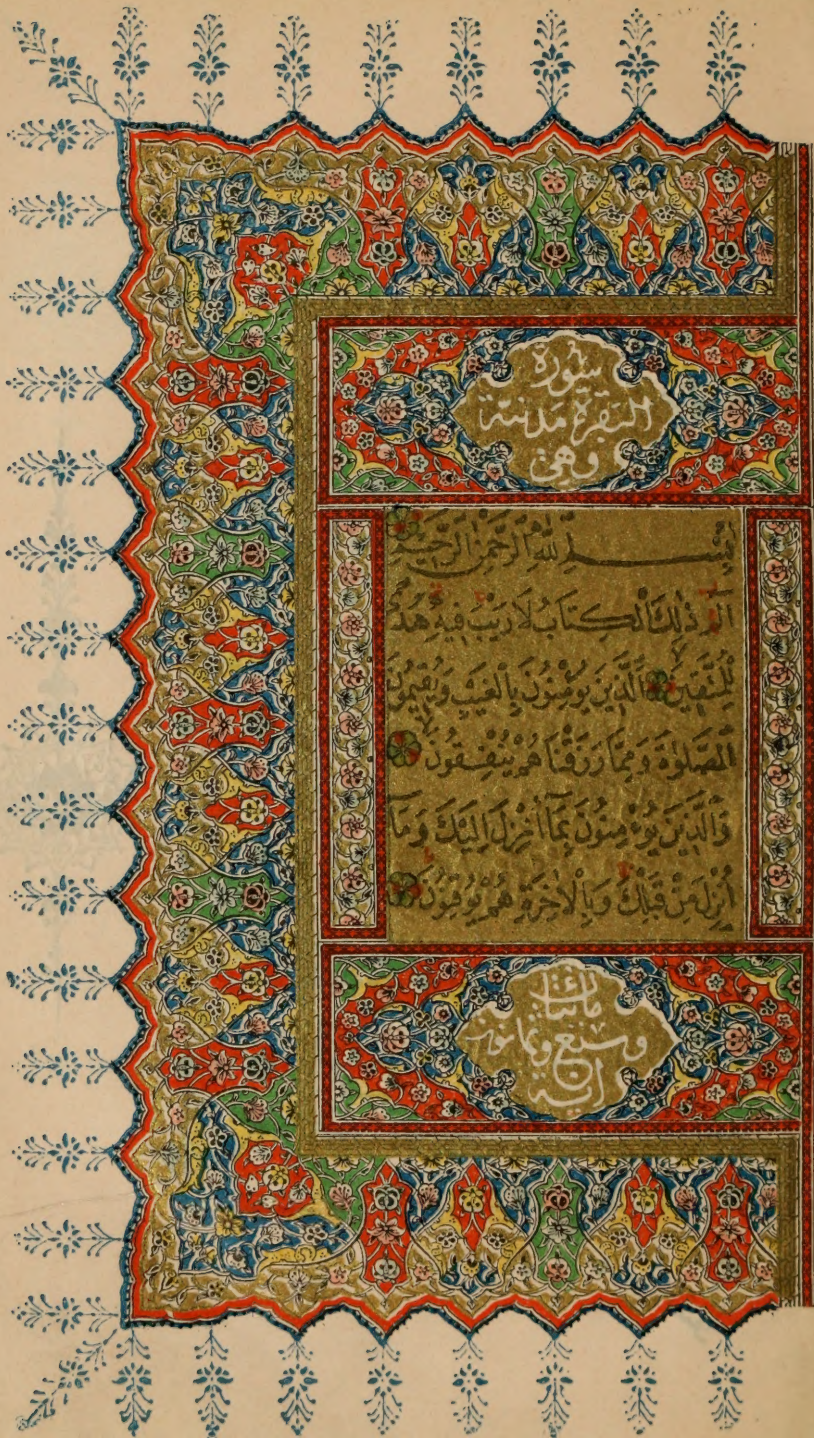 سُورَةُ
الْبَقَرَةِ مَدَنِيَّةٌ
وَهِيَ
بِسْمِ اللّٰهِ الرَّحْمٰنِ الرَّحِيمِ
الٓمٓ ذٰلِكَ الْكِتَابُ لَا رَيْبَ فِيهِ هُدًى
لِلْمُتَّقِينَ الَّذِينَ يُؤْمِنُونَ بِالْغَيْبِ وَيُقِيمُونَ
الصَّلٰوةَ وَمِمَّا رَزَقْنَاهُمْ يُنْفِقُونَ
وَالَّذِينَ يُؤْمِنُونَ بِمَا أُنْزِلَ إِلَيْكَ وَمَا
أُنْزِلَ مِنْ قَبْلِكَ وَبِالْاٰخِرَةِ هُمْ يُوقِنُونَ
مائتان
وسبع وثمانون
اية